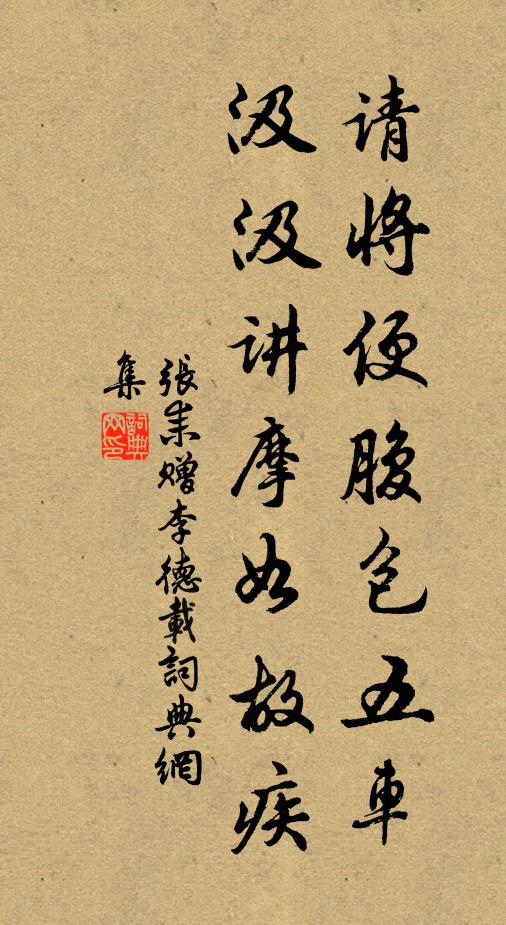 请将便腹包五車
汲汲讲摩如故疾
張耒赠李德載詞典網
集
詞典網印